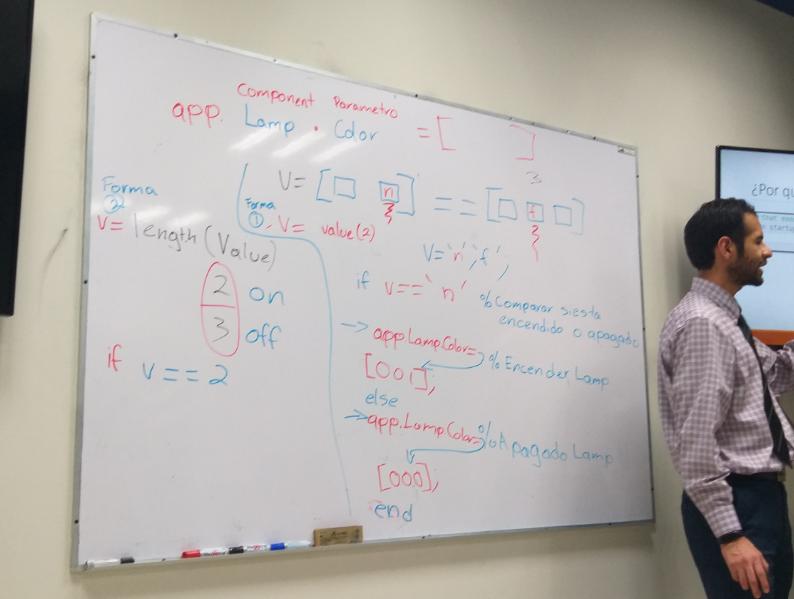 Component Parametro
app. Lamp . Color = [ ]
3
Forma
②
V= length (Value)
2 on
3 off
if V == 2
V= [ n ] == [ f ]
2 2
Forma
①. V= value(2)
V='n','f',
if V=='n' % Comparar si esta
encendido o apagado
→ app.Lamp.Color=
[001]; % Encender Lamp
else
→ app.Lamp.Color=
[000]; % Apagado Lamp
end
¿Por qu